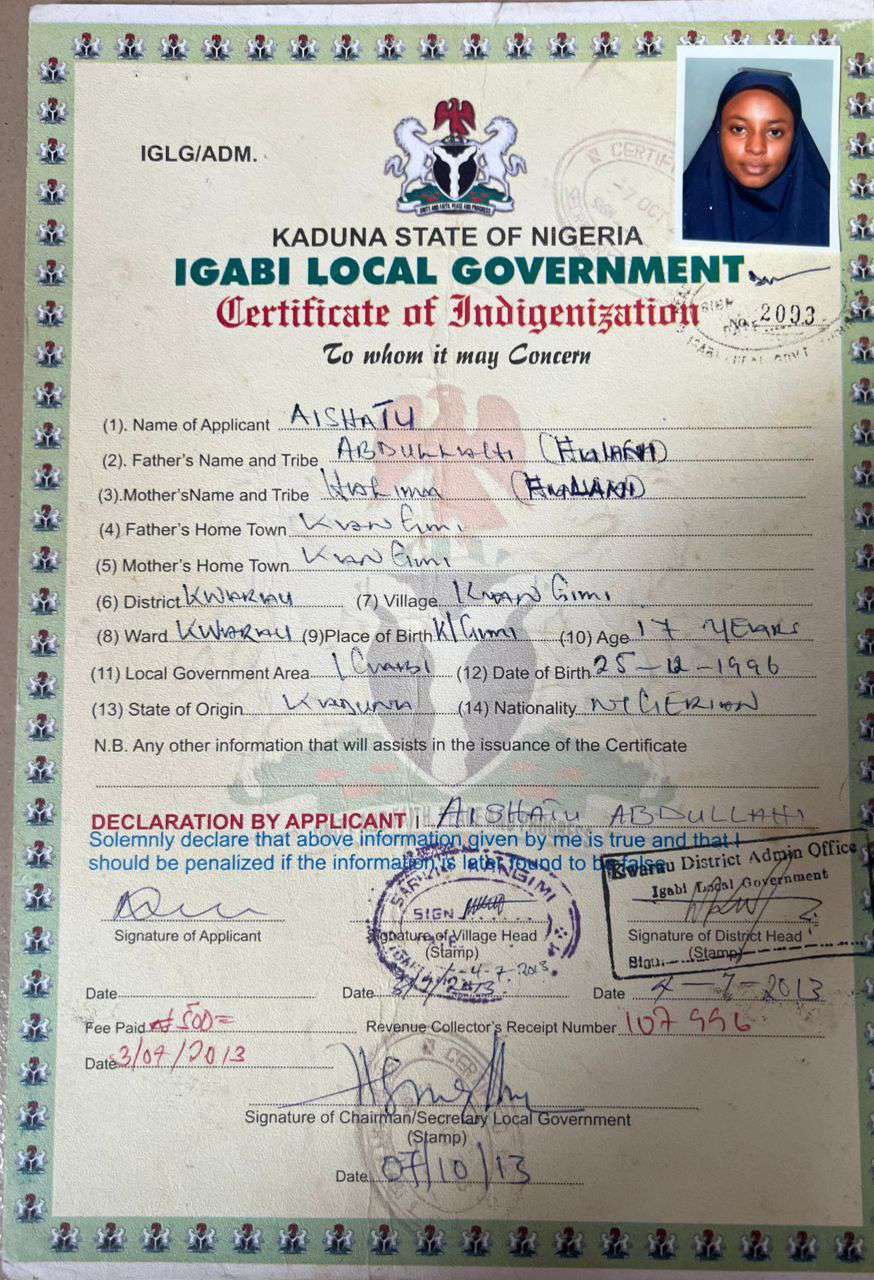 IGLG/ADM.
UNITY AND FAITH, PEACE AND PROGRESS
KADUNA STATE OF NIGERIA
IGABI LOCAL GOVERNMENT
Certificate of Indigenization
To whom it may Concern
No. 2093
(1). Name of Applicant AISHATU
(2). Father's Name and Tribe ABDULLAHI (FULANI)
(3).Mother'sName and Tribe HALIMA (FULANI)
(4) Father's Home Town KWAN GIMI
(5) Mother's Home Town KWAN GIMI
(6) District KWARAU (7) Village KWAN GIMI
(8) Ward KWARAU (9)Place of Birth K/GIMI (10) Age 17 YEARS
(11) Local Government Area IGABI (12) Date of Birth 25-12-1996
(13) State of Origin KADUNA (14) Nationality NIGERIAN
N.B. Any other information that will assists in the issuance of the Certificate
DECLARATION BY APPLICANT I AISHATU ABDULLAHI
Solemnly declare that above information given by me is true and that I
should be penalized if the information is later found to be false
Kwarau District Admin Office
Igabi Local Government
SIGN
Signature of Applicant Signature of Village Head Signature of District Head
(Stamp) (Stamp)
Sign
Date Date Date 4-7-2013
Fee Paid ₦500= Revenue Collector's Receipt Number 107996
Date 3/07/2013
Signature of Chairman/Secretary Local Government
(Stamp)
Date 07/10/13